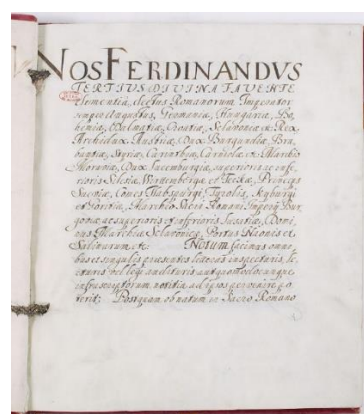 NOS FERDINANDVS
TERTIUS DIVINA FAVENTE
clementia, electus Romanorum Imperator
semper Augustus, Germaniæ, Hungariæ, Bo,
hemiæ, Dalmatiæ, Croatiæ, Sclavoniæ &c Rex,
Archidux Austriæ, Dux Burgundiæ, Bra,
bantiæ, Styriæ, Carinthiæ, Carniolæ &c Marchio
Moraviæ, Dux Lucemburgiæ, superioris ac infe,
rioris Silesiæ, Wirtembergæ et Teckæ, Princeps
Sueviæ, Comes Habspurgi, Tyrolis,
et Goritiæ, Marchio Sacri Romani Imperij Bur,
goviæ ac superioris et inferioris Lusatiæ, Domi,
nus Marchiæ Sclavonicæ, Portus Naonis et
Salinarum, etc. NOTUM facimus omni,
bus et singulis præsentes literas inspecturis, le,
cturis vel legi audituris aut quomodocunque
infrascriptorum notitia ad ipsos pervenire po,
terit; Postquam ob natum in Sacro Romano